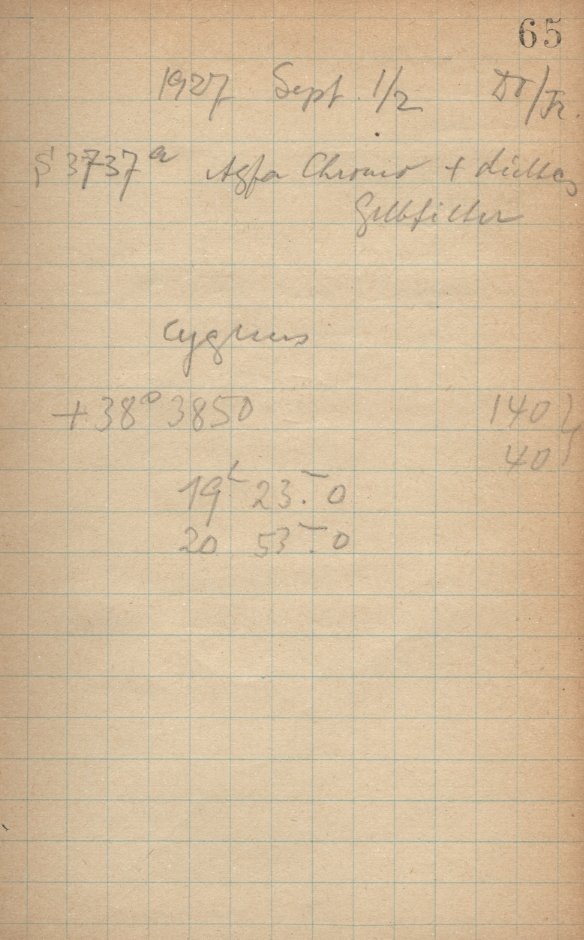 65
1927 Sept. 1/2 Dr/Fr.
3737a Agfa Chromo + dichtes
Gelbfilter
Cygnus
+38° 3850 140 }
40
19h 23.m0
20 53.m0